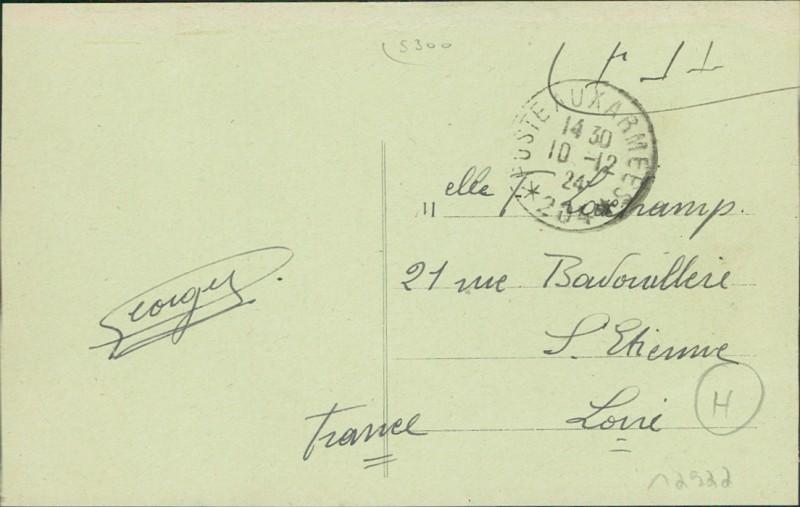 5300
POSTE AUX ARMEES
14 30
10 -12
24
*204*
Melle T. Lochamp.
21 rue Badouillère
St. Etienne
Loire
France
Georges.
H
12922